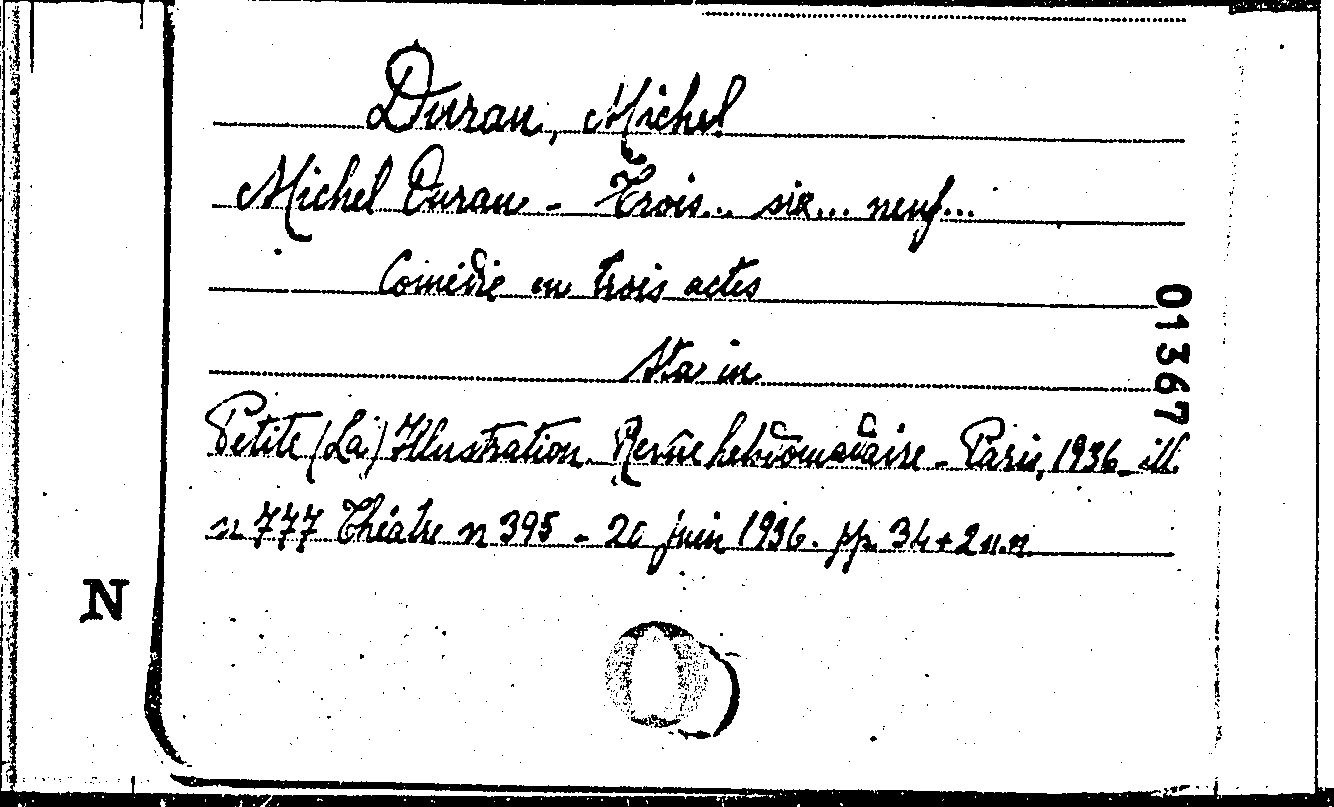 Duran, Michel
Michel Duran - Trois... six... neuf...
Comédie en trois actes
Sta in
Petite (La) Illustration. Revue hebdomadaire - Paris, 1936 - ill.
n 777 Théatre n 395 - 20 juin 1936. pp. 34+2 n.n.
01367
N